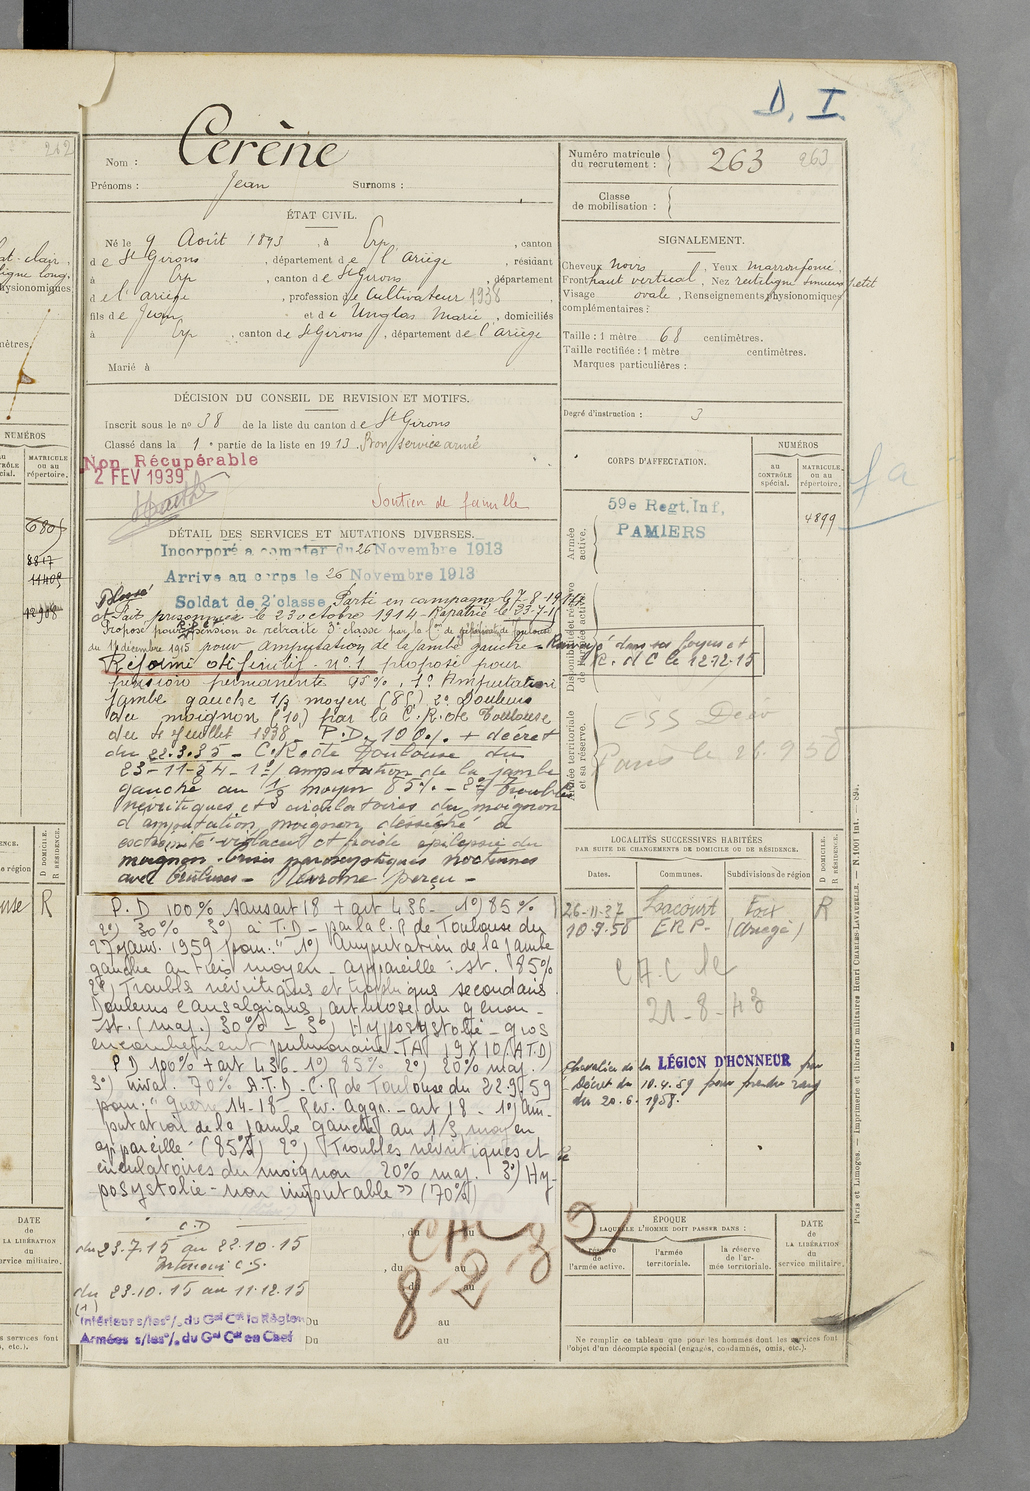 D. I.
262
Nom : Cerène
Prénoms : Jean Surnoms :
Numéro matricule du recrutement : 263 263
Classe de mobilisation :
ÉTAT CIVIL.
Né le 9 Août 1893, à Erp, canton
de St Girons, département de l'Ariège, résidant
à Erp, canton de St Girons, département
de l'ariège, profession de Cultivateur 1938
fils de Jean et de Unglas Marie, domiciliés
à Erp, canton de St Girons, département de l'Ariège
Marié à
SIGNALEMENT.
Cheveux noirs, Yeux marron foncé,
Front haut vertical, Nez rectiligne sinueux petit
Visage ovale, Renseignements physionomiques
complémentaires :
Taille : 1 mètre 68 centimètres.
Taille rectifiée : 1 mètre centimètres.
Marques particulières :
Degré d'instruction : 3
DÉCISION DU CONSEIL DE REVISION ET MOTIFS.
Inscrit sous le no 38 de la liste du canton de St Girons
Classé dans la 1e partie de la liste en 1913. Bon service armé
Non Récupérable
2 FEV 1939
Soutien de famille
CORPS D'AFFECTATION.
NUMÉROS
au CONTRÔLE spécial.
MATRICULE ou au répertoire.
Armée active.
59e Regt. Inf,
PAMIERS
4899
fa
Disponibilité et réserve de l'armée active.
Armée territoriale et sa réserve.
Paris le
DÉTAIL DES SERVICES ET MUTATIONS DIVERSES.
Incorporé a compter du 26 Novembre 1913
Arrivé au corps le 26 Novembre 1913
Soldat de 2e classe Parti en campagne le 7-8-1914
Blessé
et Fait prisonnier le 23 octobre 1914 - Rapatrié le 23-7-15
Proposé pour pension de retraite 3e classe par la Con de de Toulouse
du 11 décembre 1915 pour amputation de la jambe gauche - Renvoyé dans ses foyers et
R. d C le 12 12-15
Réformé définitif n° 1 proposé pour
pension permanente 95%, 1° Amputation
jambe gauche 1/3 moyen (85), 2° Douleurs
du moignon (10) par la C.R. de Toulouse
du 4 Juillet 1938 - P.D. 100% + décret
du 22.3.35 - C.R de Toulouse du
23-11-24 - 1°/ amputation de la jambe
gauche au 1/3 moyen 85% - 2°/ Troubles
névritiques et circulatoires du moignon
d'amputation, moignon desséché à
extrémité violacée et froide epilepsie du
moignon. Crises paroxystiques nocturnes
avec brûlures - Névrome perçu -
P.D 100% sans art 18 + art 436 - 1°) 85%
2°) 30% 3° à T.D - par la C.R de Toulouse du
27 janv. 1959 pour : " 1°) Amputation de la jambe
gauche au tiers moyen - appareillé : st. 85%
2°) Troubles névritiques et trophiques secondaires
Douleurs causalgiques, arthrose du genou -
st. (maj.) 30% - 3°) Hyposystolie - gros
encombrement pulmonaire - TA 19 X 10 (A.T.D)
P D 100% + art 436 - 1°) 85% 2°) 20% maj.
3°) nival. 70% A.T.D - C.R de Toulouse du 22 9 59
pour : " Guerre 14-18 - Rev. Aggr. - art 18 - 1°) Am-
putation de la jambe gauche au 1/3 moyen
appareillé (85%) 2°) Troubles névritiques et
circulatoires du moignon 20% maj. 3°) Hy-
posystolie - non imputable » (70%)
LOCALITÉS SUCCESSIVES HABITÉES
PAR SUITE DE CHANGEMENTS DE DOMICILE OU DE RÉSIDENCE.
Dates. Communes. Subdivisions de région
D DOMICILE. R RÉSIDENCE.
26-11-37 Lacourt Foix R
10.9.58 ERP - (Ariège)
CAC le
21-8-43
Chevalier de la LÉGION D'HONNEUR par
Décret du 10.4.59 pour prendre rang
du 20.6.1958.
C.D
du 23.7.15 au 22.10.15
Intérieur C.S.
du 23.10.15 au 11.12.15
(1)
Intérieur s/les o/. du Gal Ct la Région
Armées s/les o/. du Gal Ct en Chef
, du au
, du au
du au
Du au
Du au
8-2
ÉPOQUE
LAQUELLE L'HOMME DOIT PASSER DANS :
réserve de l'armée active.
l'armée territoriale.
la réserve de l'armée territoriale.
DATE de LA LIBÉRATION du service militaire.
Ne remplir ce tableau que pour les hommes dont les services font
l'objet d'un décompte spécial (engagés, condamnés, omis, etc.).
Paris et Limoges. — Imprimerie et librairie militaires Henri CHARLES-LAVAUZELLE. — N. 1001 int. — 894.